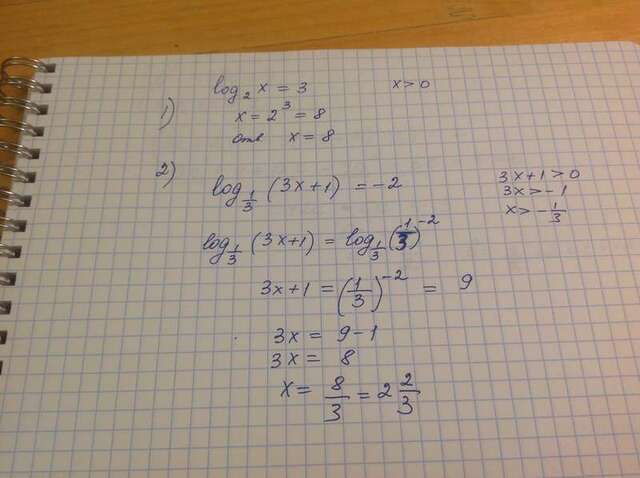 log₂ x = 3    x > 0
1) x = 2³ = 8
отв x = 8
2) log_{1/3} (3x+1) = -2    3x+1 > 0
3x > -1
x > -1/3
log_{1/3} (3x+1) = log_{1/3} (1/3)^{-2}
3x+1 = (1/3)^{-2} = 9
3x = 9-1
3x = 8
x = 8/3 = 2 2/3